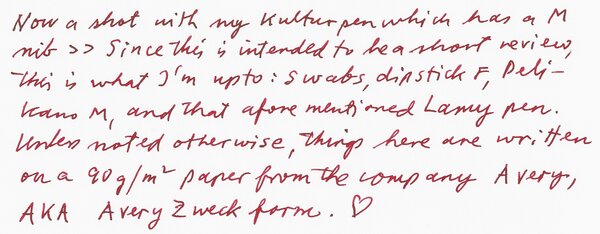 Now a shot with my Kulturpen which has a M
nib >> Since this is intended to be a short review,
this is what I'm up to: Swabs, dipstick F, Peli-
kano M, and that aforementioned Lamy pen.
Unless noted otherwise, things here are written
on a 90g/m² paper from the company Avery,
AKA Avery Zweckform. ♡